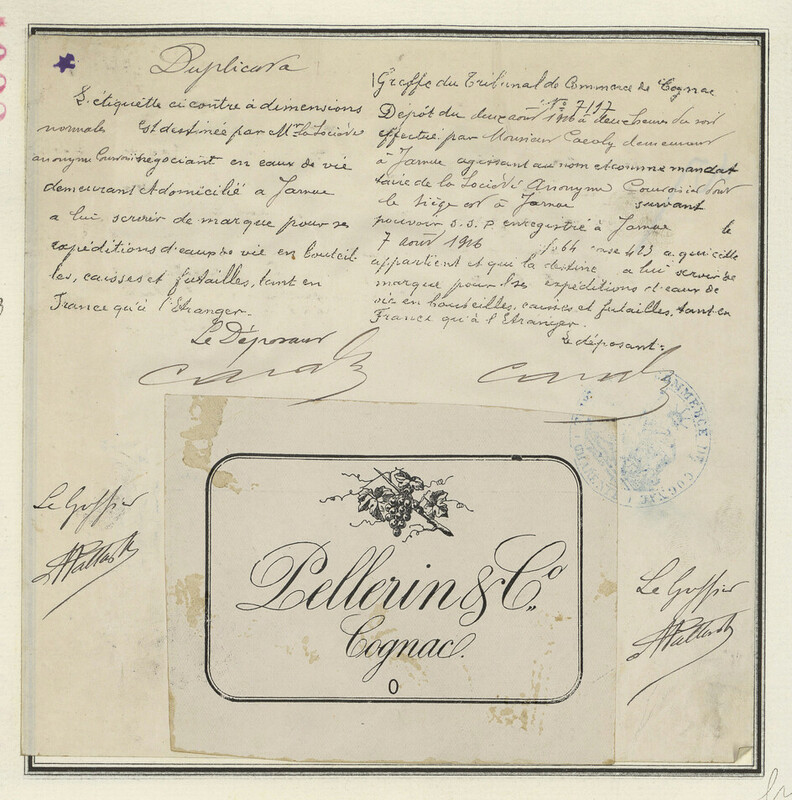 Duplicata
L'étiquette ci contre à dimensions
normales est destinée par Mr la Société
anonyme Courvoisier négociant en eaux de vie
demeurant et domicilié a Jarnac
a lui servir de marque pour ses
expéditions d'eaux de vie en bouteil-
les, caisses et futailles, tant en
France qu'à l'Etranger.
Le Déposant
Greffe du Tribunal de Commerce de Cognac
No 7117
Dépôt du deux août 1916 à deux heures du soir
effectué par Monsieur demeurant
à Jarnac agissant au nom et comme mandat
taire de la Société Anonyme Courvoisier dont
le siège est à Jarnac suivant
pouvoir S.S.P enregistré à Jarnac le
7 août 1916 fo 64 case 423 a qui elle
appartient et que la destine a lui servir de
marque pour ses expéditions d'eaux de
vie en bouteilles, caisses et futailles, tant en
France qu'à l'Etranger.
Le déposant:
COMMERCE DE COGNAC
Le Greffier
Pellerin & Co.
Cognac.
O
Le Greffier